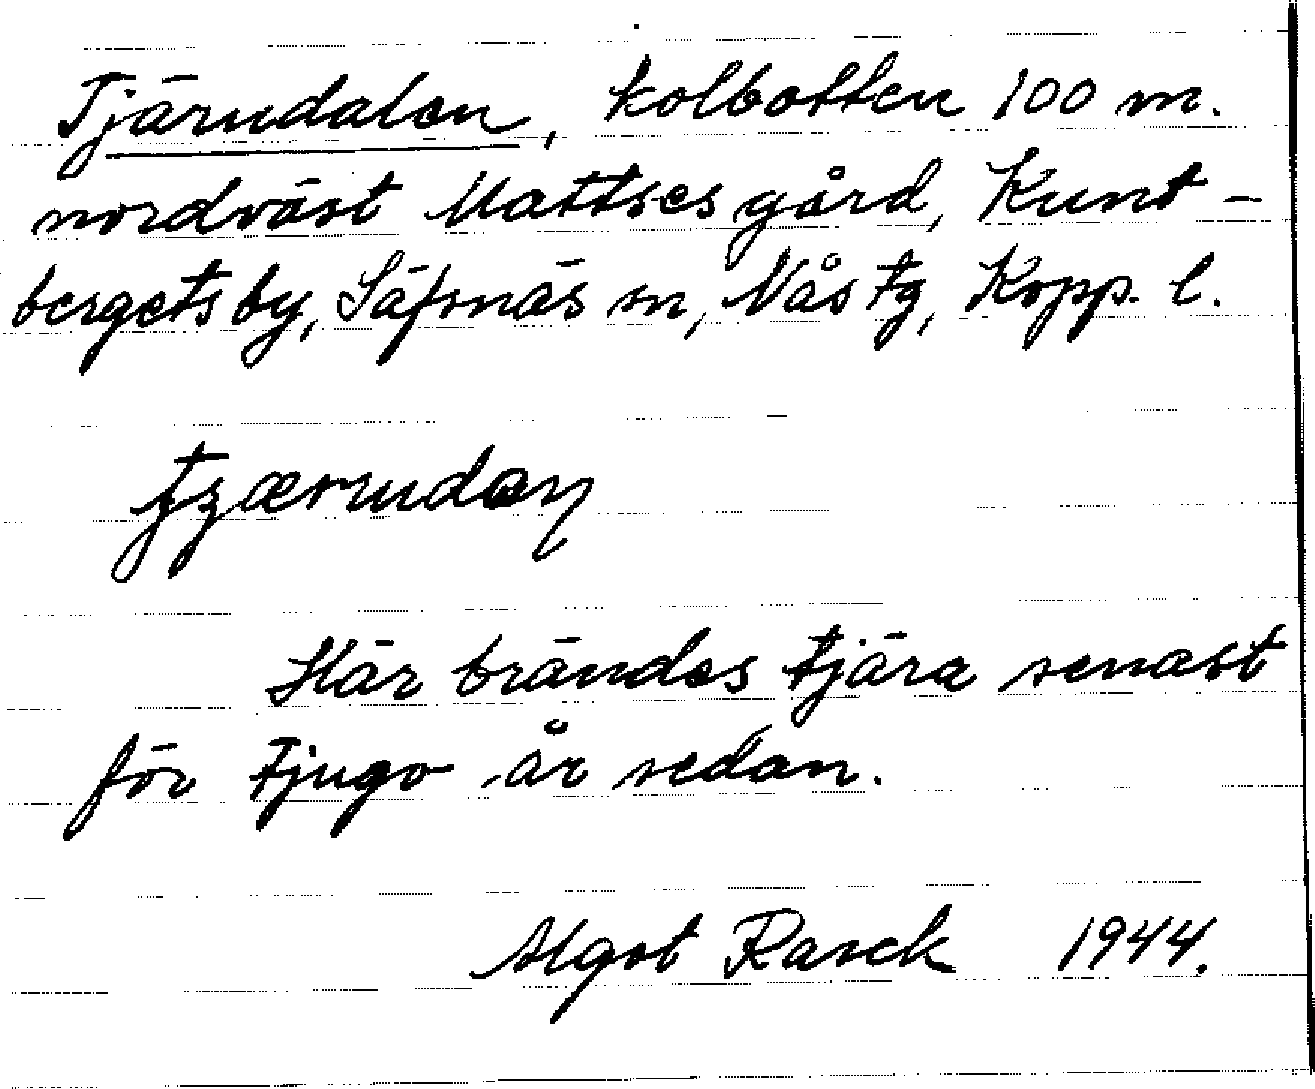 Tjärndalen, kolbotten 100 m.
nordväst Mattses gård, Kunt-
bergets by, Säfsnäs sn, Nås tg, Kopp. l.
Här brändes tjära senast
för tjugo år sedan.
Algot Rasck 1944.